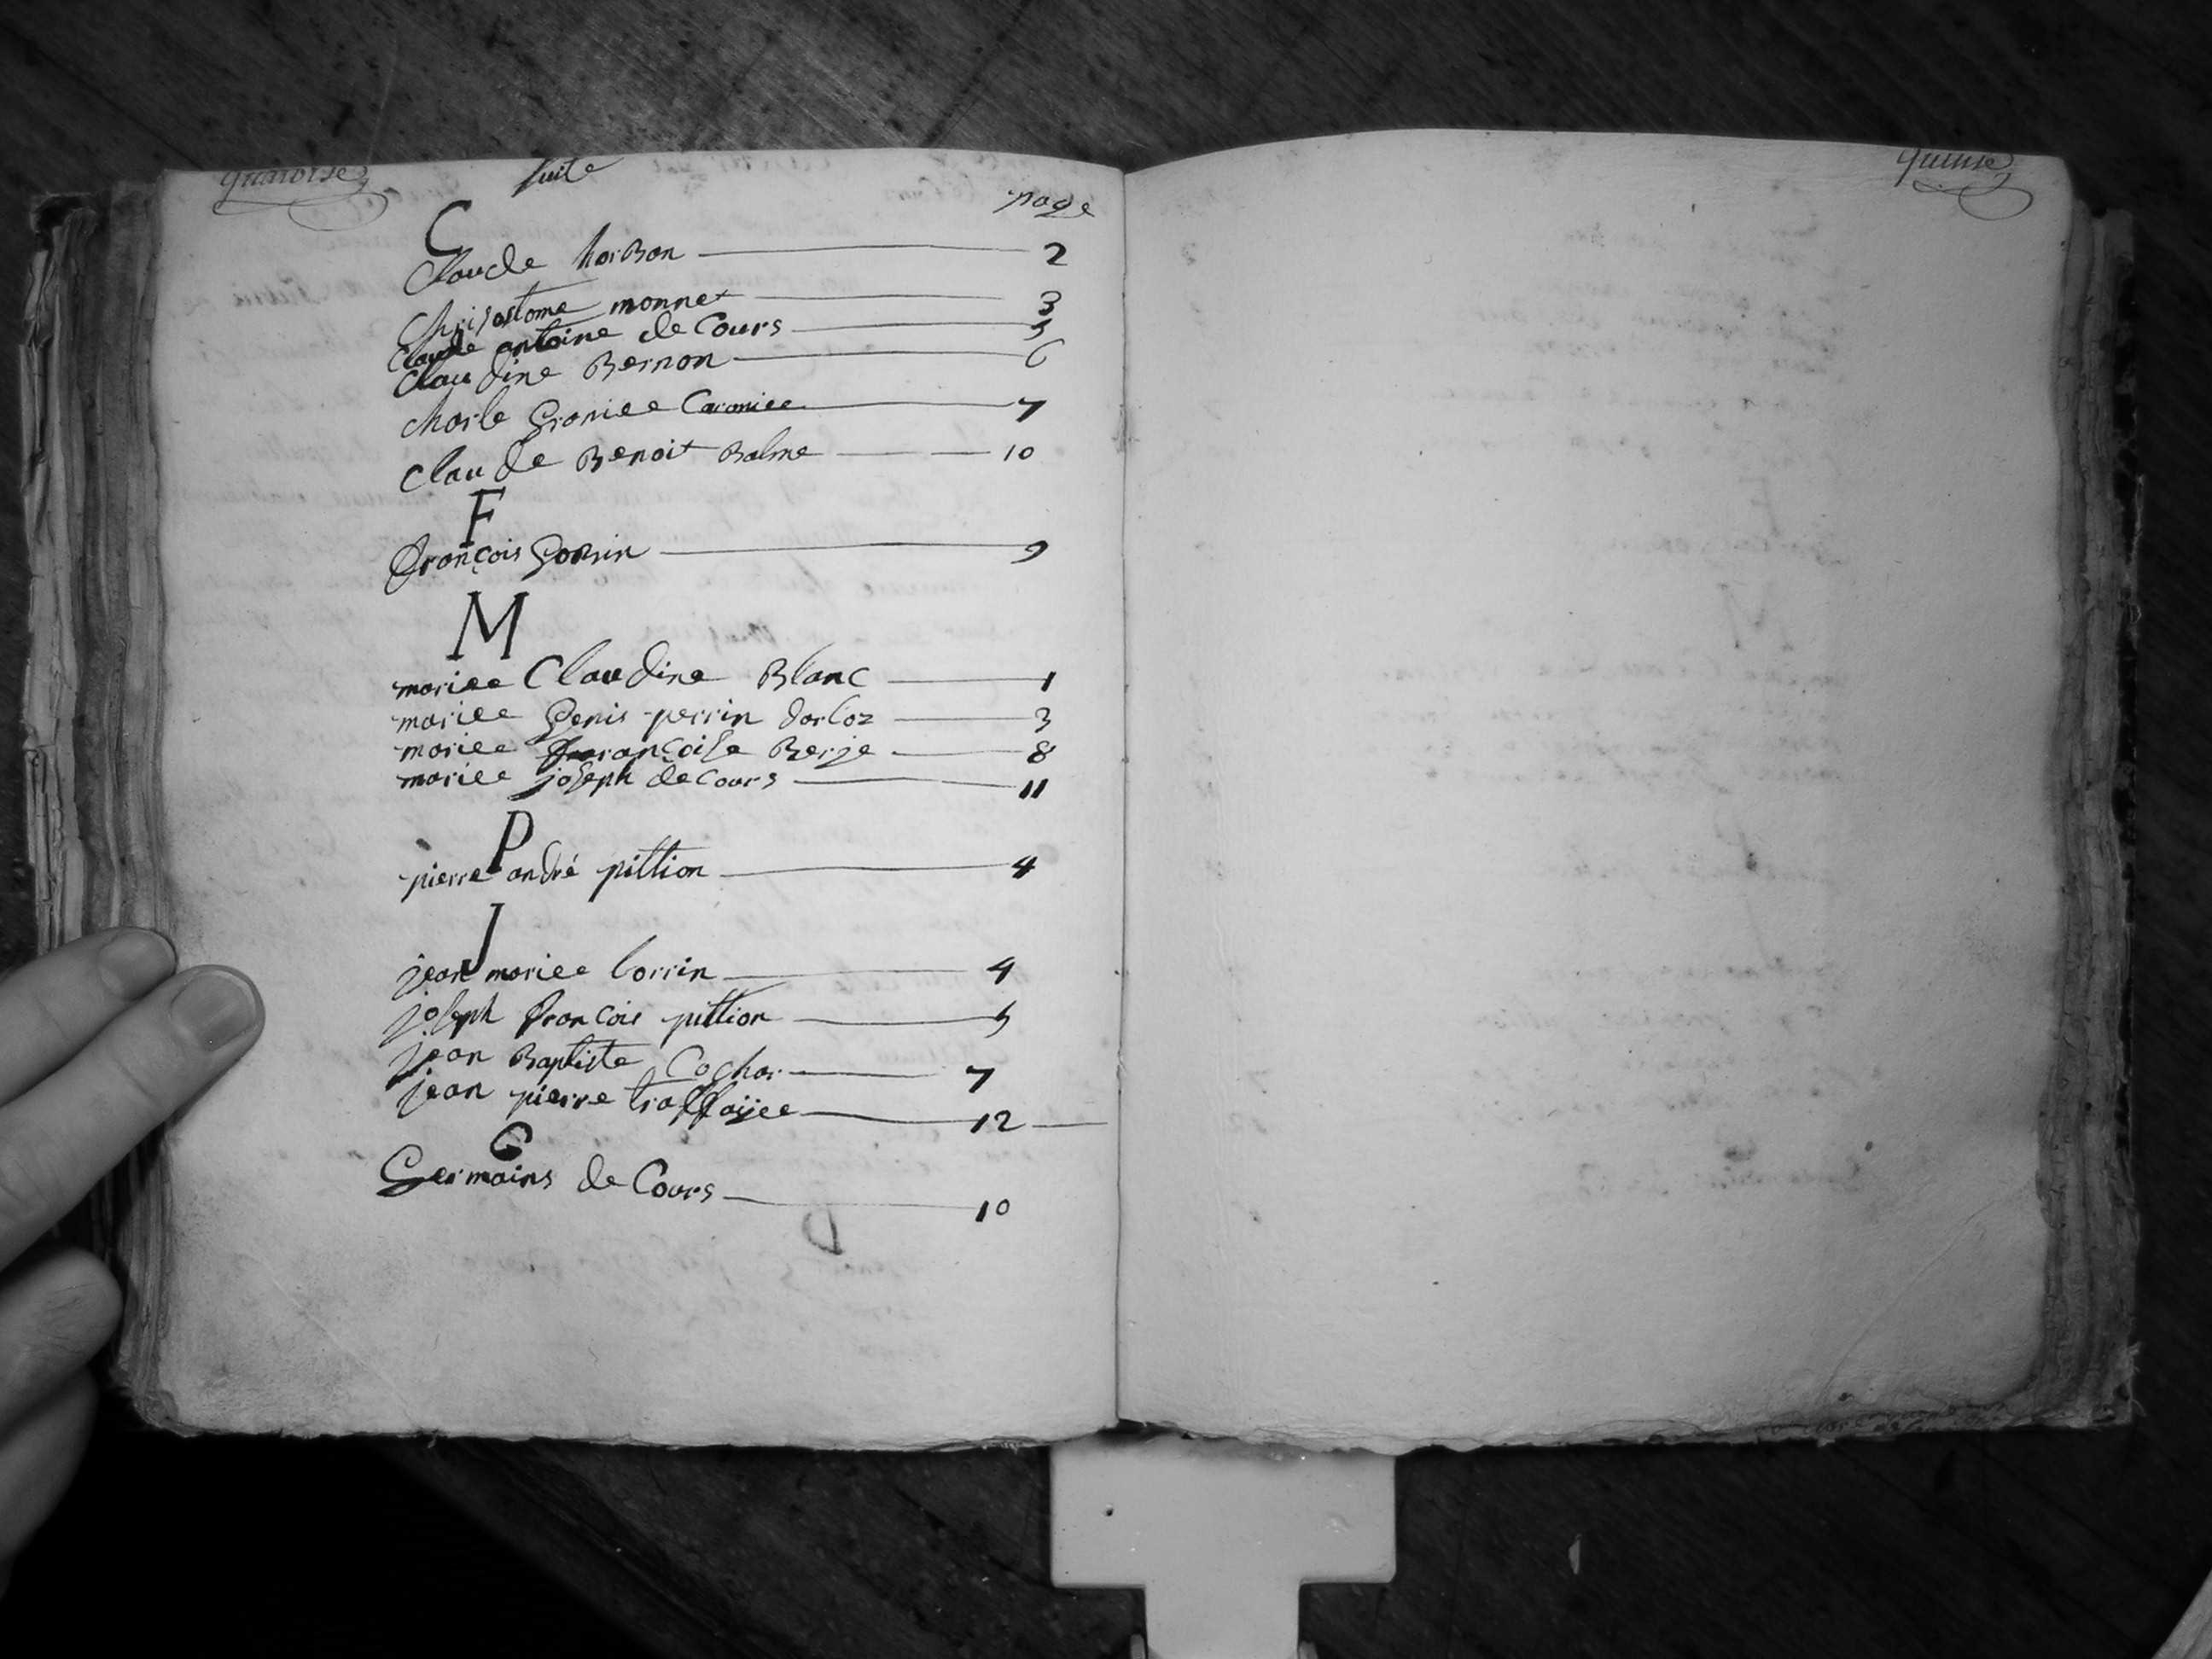 quatorse
suite
page
C
Claude horBon 2
Chrisostome monnet 3
Claude antoine de Cours 5
Claudine Bernon 6
Charle Graniee Caroniee 7
Claude Benoit Balme 10
F
François Gorsin 9
M
mariee Claudine Blanc 1
mariee Denis perrin dorloz 3
mariee françoise Berje 8
mariee joseph de Cours 11
P
pierre andré pittion 4
J
jean mariee lorrin 4
joseph François pittion 5
jean Baptiste Cochar 7
jean pierre traffaÿee 12
G
Germains de Cours 10
quinse